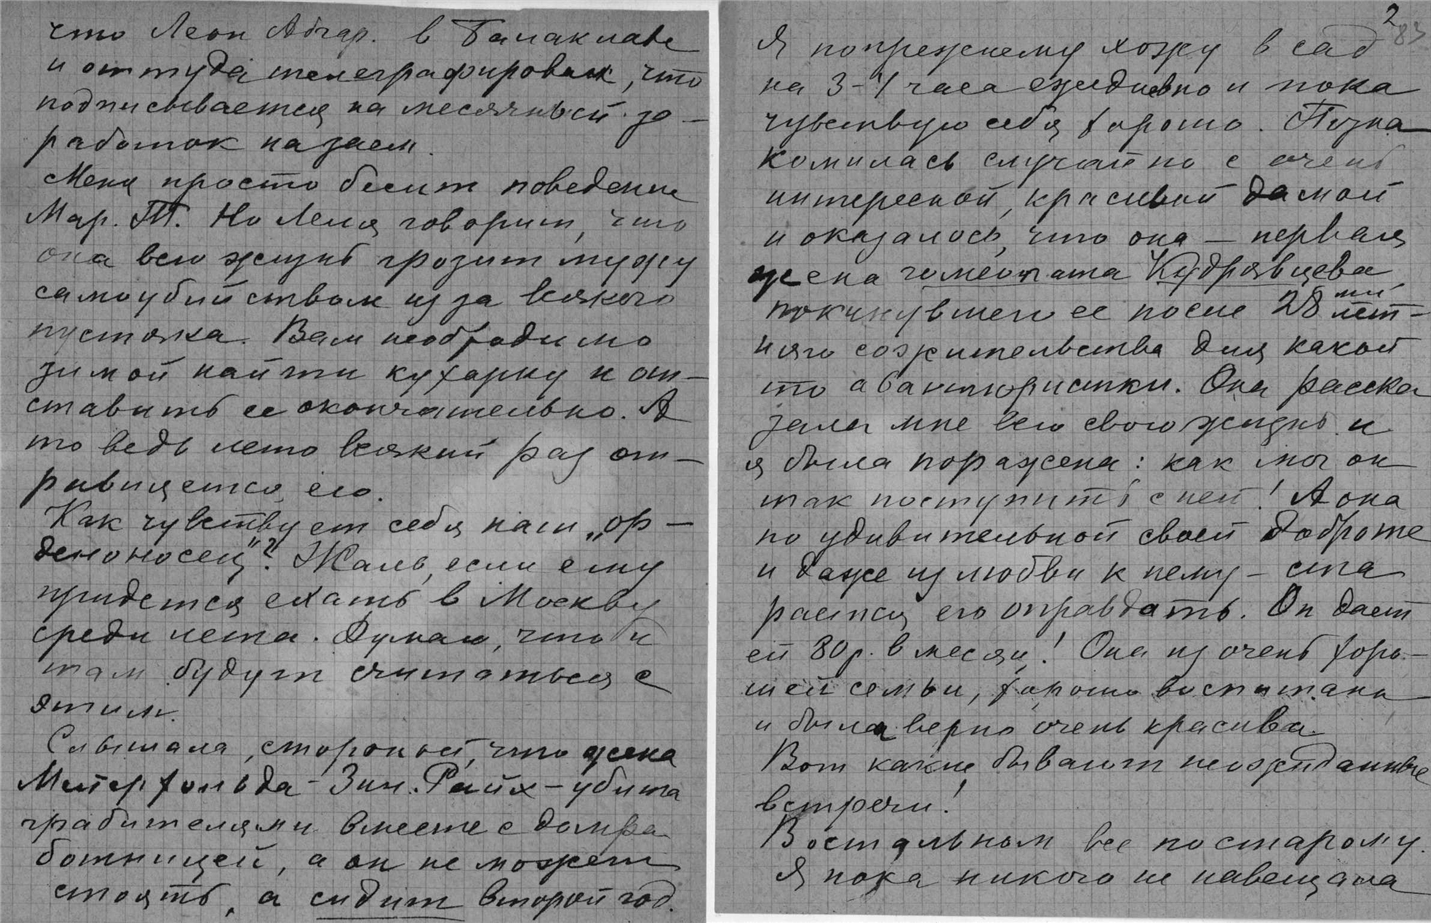 что Леон Абгар. в Балаклаве
и оттуда телеграфировал, что
подписывается на месячный за-
работок на заем.
Меня просто бесит поведение
Мар. П. Но Леля говорит, что
она всю жизнь грозит мужу
самоубийством из за всякого
пустяка. Вам необходимо
зимой найти кухарку и от-
ставить ее окончательно. А
то ведь лето всякий раз от-
равляется его.
Как чувствует себя наш „ор-
деноносец"? Жаль, если ему
придется ехать в Москву
среди лета. Думаю, что и
там будут считаться с
этим.
Слышала, стороной, что жена
Мейерхольда - Зин. Райх - убита
грабителями вместе с домра
ботницей, а он не может
стоять, а сидит второй год.
2
83
Я попрежнему хожу в сад
на 3-4 часа ежедневно и пока
чувствую себя хорошо. Позна
комилась случайно с очень
интересной, красивой дамой
и оказалось, что она - первая
жена гомеопата Кудрявцева,
покинувшего ее после 28 ми лет-
няго сожительства для какой
то авантюристки. Она расска
зала мне всю свою жизнь и
я была поражена: как мог он
так поступить с ней! А она
по удивительной своей доброте
и даже из любви к нему - ста
рается его оправдать. Он дает
ей 80 р. в месяц! Она из очень хоро-
шей семьи, хорошо воспитана
и была верно очень красива.
Вот какие бывают неожиданные
встречи!
В остальном все по старому.
Я пока никого не навещала